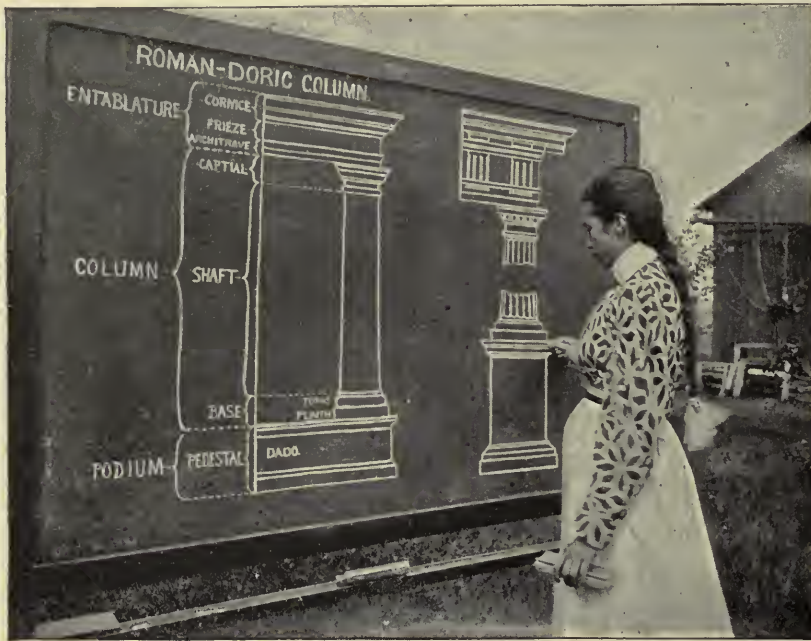 ROMAN-DORIC COLUMN.
ENTABLATURE
CORNICE
FRIEZE
ARCHITRAVE
CAPTIAL
COLUMN
SHAFT
BASE
TORUS
PLINTH
PODIUM
PEDESTAL
DADO.